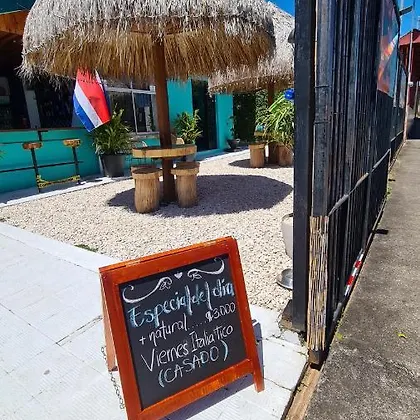 Especial del día
+ natural ..... ₡3.000
Viernes Italia'tico
(CASADO)